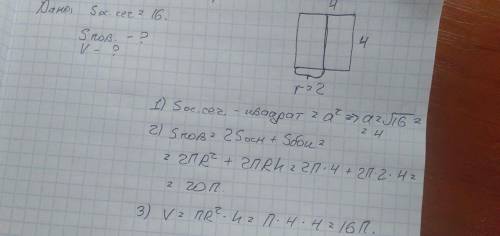 Дано: Sос.сеч = 16.
Sпов. - ?
V - ?
4
4
r=2
1) Sос.сеч. - квадрат = a² => a = √16 =
= 4
2) Sпов = 2Sосн + Sбок =
= 2ПR² + 2ПRh = 2П·4 + 2П·2·4 =
= 20П.
3) V = ПR²·h = П·4·4 = 16П.